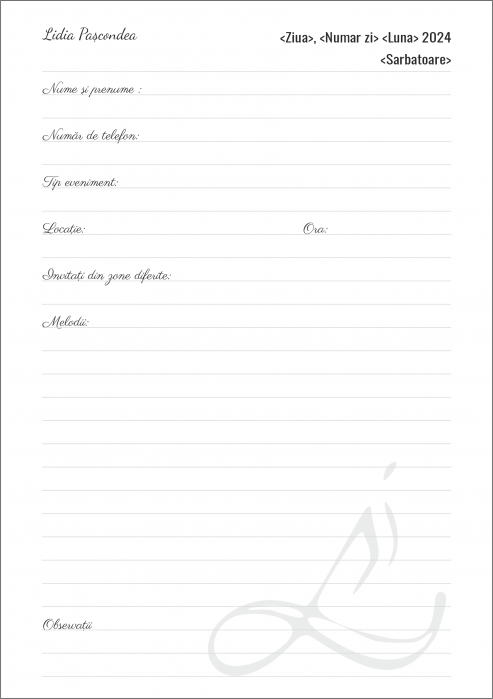 Lidia Pașcondea
<Ziua>, <Numar zi> <Luna> 2024
<Sarbatoare>
Nume și prenume :
Număr de telefon:
Tip eveniment:
Locație: Ora:
Invitați din zone diferite:
Melodii:
Observații